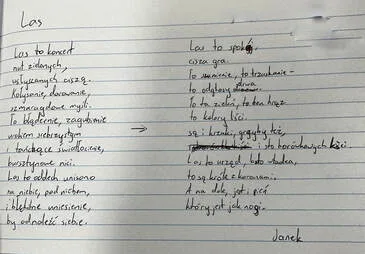 Las
Las to koncert
nut zielonych,
usłyszanych ciszą.
Kołysanie, darowanie,
szmaragdowe myśli.
To błądzenie, zagubienie
wzrokiem srebrzystym
i tańczące światłocienie,
bursztynowe nici.
Las to oddech unisono
na niebie, pod niebem,
i błękitne uniesienie,
by odnaleźć siebie.
→
Las to spokój,
cisza gra.
To sumienie, to trzaskanie –
to odgłosy drwa
To ta zieleń, to ten brąz
to kolory liści
są i krzaki, grzyby też,
i sto borówkowych kiści.
Las to urząd, bato władca,
to są króle z koronami.
A na dole, jest i pień
który jest jak nogi.
Janek